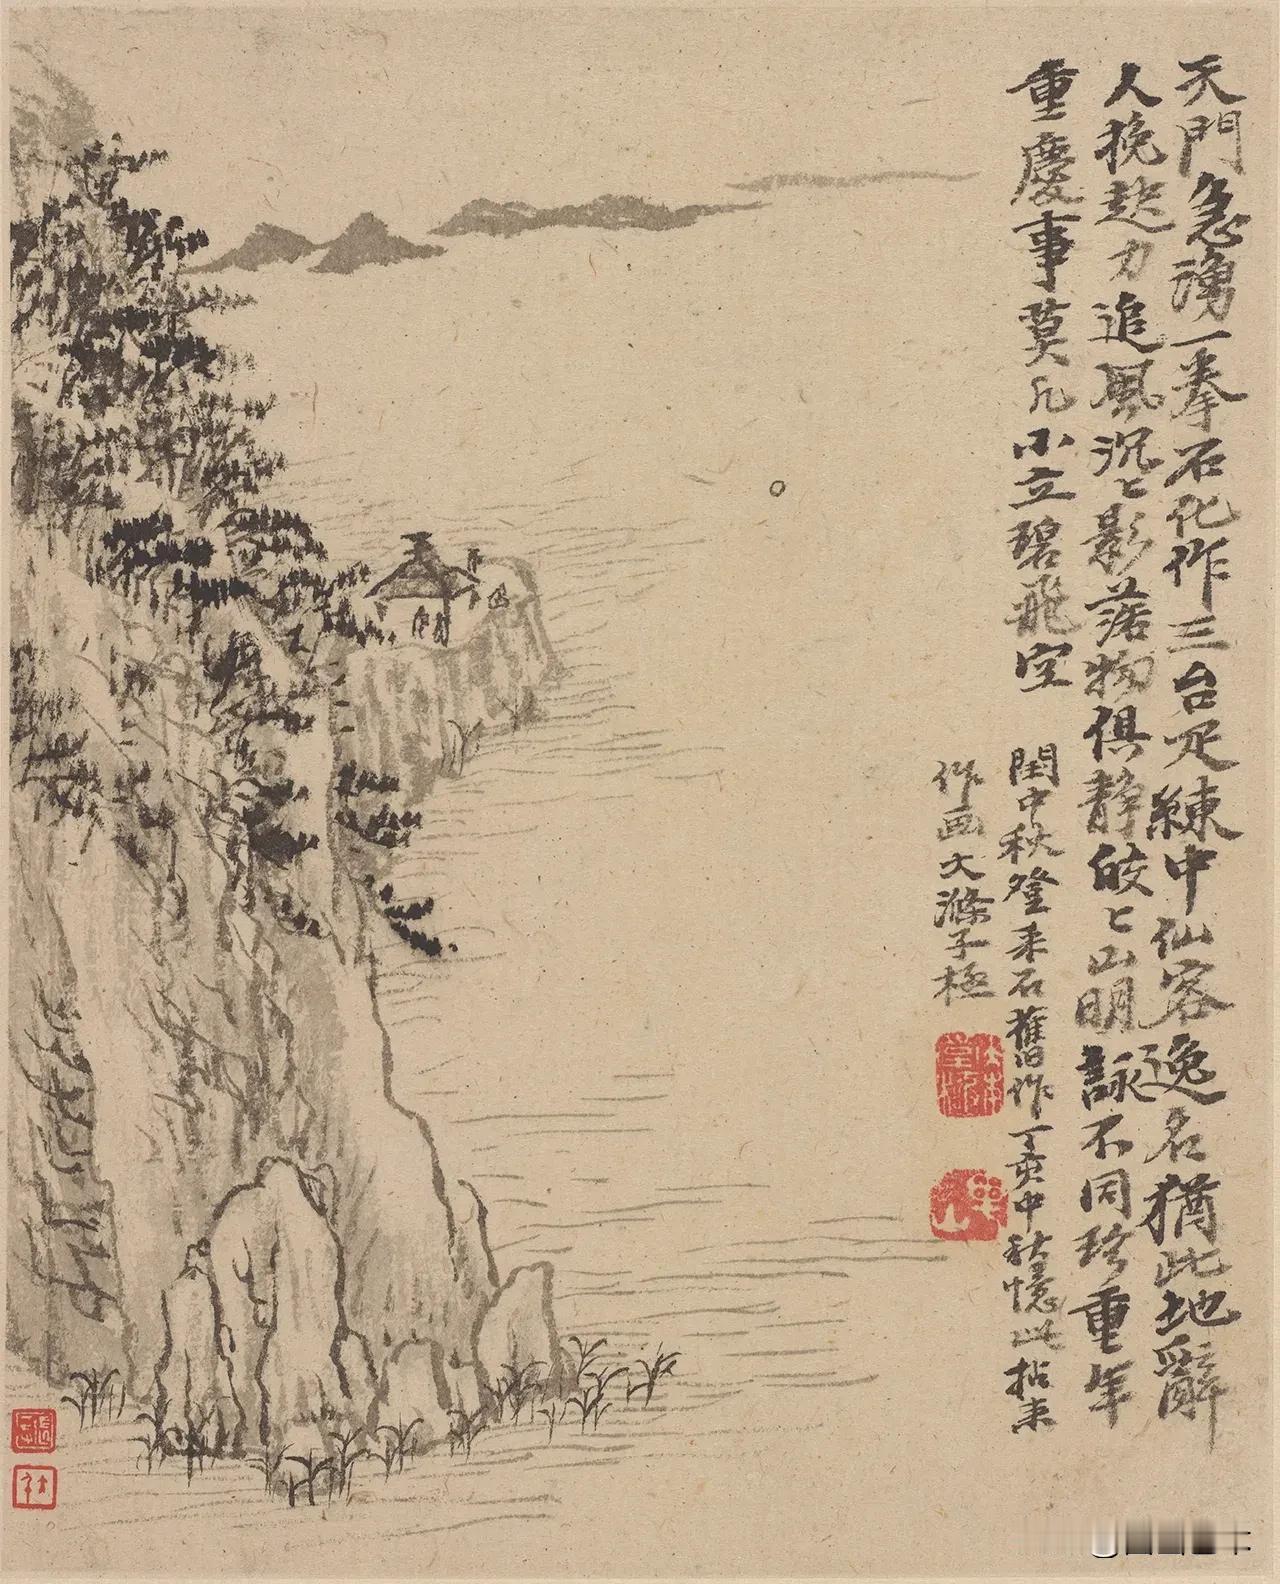 天門急湧一拳石化作三台足練中仙客逸名猶此地辭
人挽起力追風沉〻影落物俱静皎〻山明詠不同珍重年
重慶事莫凡小立碧飛空
閏中秋登采石舊作丁亥中秋憶此拈來
作画大滌子極